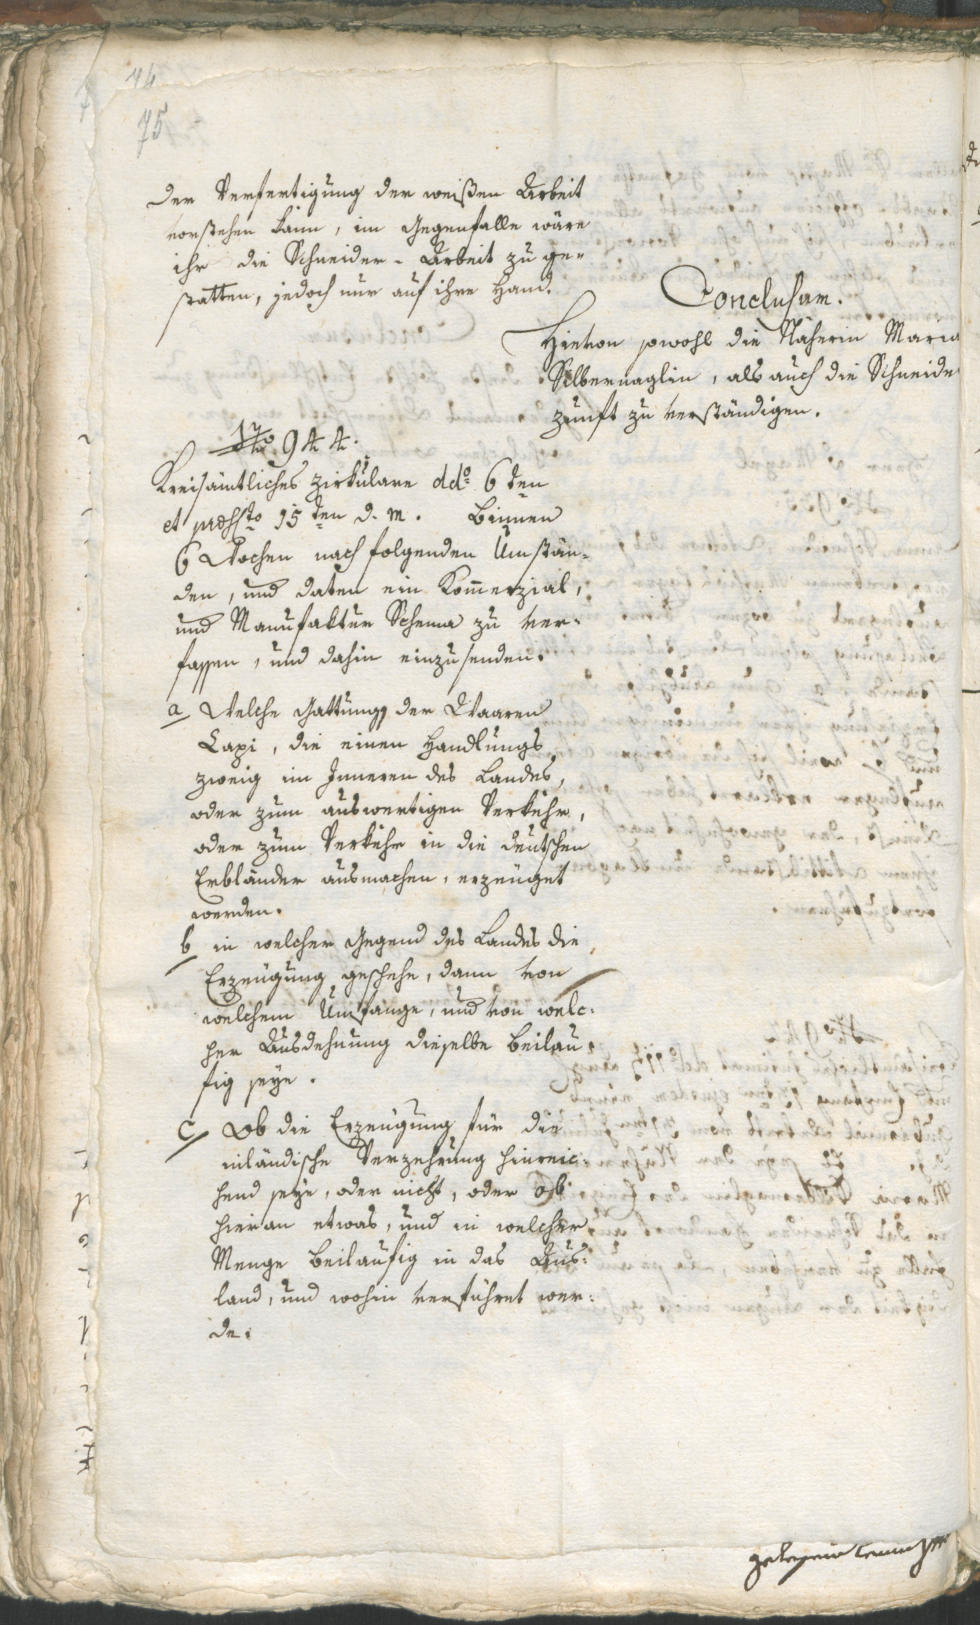 74
75
Der Verfertigung der weißen Arbeit
vorstehen kann, im Gegenfalle wäre
ihr die Schneider-Arbeit zu ge-
statten, jedoch nur auf ihre Hand.
Conclusum.
Hievon sowohl die Näherin Maria
Silbernaglin, als auch die Schneide
zunft zu verständigen.
Nro. 944.
Kreisämtliches Zirkulare ddo. 6ten
et præsto 15ten d. M. Binnen
6 Wochen nach folgenden Umstän-
den, und daten ein Kom̅erzial,
und Manufaktur Schema zu ver-
fassen, und dahin einzusenden.
a Welche Gattung der Waaren
Lapi, die einen Handlungs
zweig im Inneren des Landes,
oder zum auswertigen Verkehr,
oder zum Verkehr in die deutschen
Erbländer ausmachen, erzeuget
werden.
b in welcher Gegend des Landes die
Erzeugung geschehe, dann von
welchem Umfange, und von welc-
her Ausdehnung dieselbe beiläu
fig seye.
c Ob die Erzeugung für die
inländische Verzehrung hinreic-
hend seye, oder nicht, oder ob
hievon etwas, und in welcher
Menge beiläufig in das Aus-
land, und wohin verführet wer-
de.